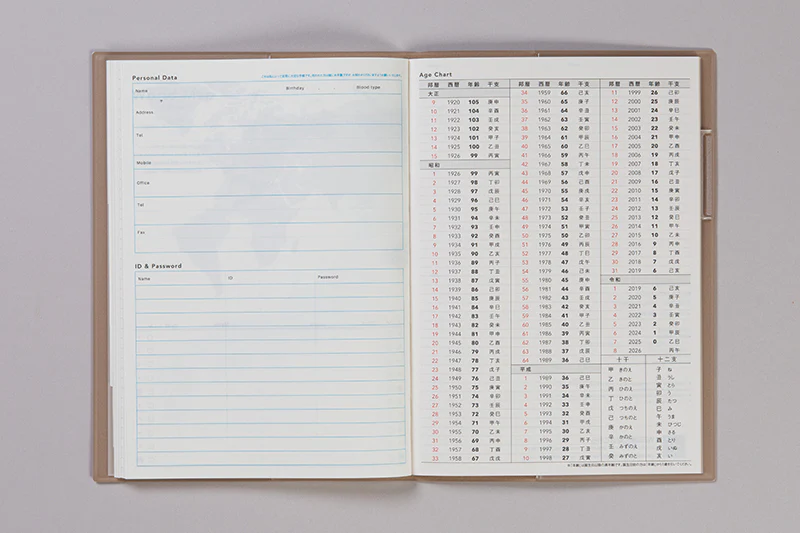 Personal Data
Name Birthday Blood type
Address
Tel
Mobile
Office
Tel
Fax
ID & Password
Name ID Password
Age Chart
邦暦 西暦 年齢 干支
大正
9 1920 105 庚申
10 1921 104 辛酉
11 1922 103 壬戌
12 1923 102 癸亥
13 1924 101 甲子
14 1925 100 乙丑
15 1926 99 丙寅
昭和
1 1926 99 丙寅
2 1927 98 丁卯
3 1928 97 戊辰
4 1929 96 己巳
5 1930 95 庚午
6 1931 94 辛未
7 1932 93 壬申
8 1933 92 癸酉
9 1934 91 甲戌
10 1935 90 乙亥
11 1936 89 丙子
12 1937 88 丁丑
13 1938 87 戊寅
14 1939 86 己卯
15 1940 85 庚辰
16 1941 84 辛巳
17 1942 83 壬午
18 1943 82 癸未
19 1944 81 甲申
20 1945 80 乙酉
21 1946 79 丙戌
22 1947 78 丁亥
23 1948 77 戊子
24 1949 76 己丑
25 1950 75 庚寅
26 1951 74 辛卯
27 1952 73 壬辰
28 1953 72 癸巳
29 1954 71 甲午
30 1955 70 乙未
31 1956 69 丙申
32 1957 68 丁酉
33 1958 67 戊戌
邦暦 西暦 年齢 干支
34 1959 66 己亥
35 1960 65 庚子
36 1961 64 辛丑
37 1962 63 壬寅
38 1963 62 癸卯
39 1964 61 甲辰
40 1965 60 乙巳
41 1966 59 丙午
42 1967 58 丁未
43 1968 57 戊申
44 1969 56 己酉
45 1970 55 庚戌
46 1971 54 辛亥
47 1972 53 壬子
48 1973 52 癸丑
49 1974 51 甲寅
50 1975 50 乙卯
51 1976 49 丙辰
52 1977 48 丁巳
53 1978 47 戊午
54 1979 46 己未
55 1980 45 庚申
56 1981 44 辛酉
57 1982 43 壬戌
58 1983 42 癸亥
59 1984 41 甲子
60 1985 40 乙丑
61 1986 39 丙寅
62 1987 38 丁卯
63 1988 37 戊辰
64 1989 36 己巳
平成
1 1989 36 己巳
2 1990 35 庚午
3 1991 34 辛未
4 1992 33 壬申
5 1993 32 癸酉
6 1994 31 甲戌
7 1995 30 乙亥
8 1996 29 丙子
9 1997 28 丁丑
10 1998 27 戊寅
邦暦 西暦 年齢 干支
11 1999 26 己卯
12 2000 25 庚辰
13 2001 24 辛巳
14 2002 23 壬午
15 2003 22 癸未
16 2004 21 甲申
17 2005 20 乙酉
18 2006 19 丙戌
19 2007 18 丁亥
20 2008 17 戊子
21 2009 16 己丑
22 2010 15 庚寅
23 2011 14 辛卯
24 2012 13 壬辰
25 2013 12 癸巳
26 2014 11 甲午
27 2015 10 乙未
28 2016 9 丙申
29 2017 8 丁酉
30 2018 7 戊戌
31 2019 6 己亥
令和
1 2019 6 己亥
2 2020 5 庚子
3 2021 4 辛丑
4 2022 3 壬寅
5 2023 2 癸卯
6 2024 1 甲辰
7 2025 0 乙巳
8 2026 丙午
十干 十二支
甲 きのえ
乙 きのと
丙 ひのえ
丁 ひのと
戊 つちのえ
己 つちのと
庚 かのえ
辛 かのと
壬 みずのえ
癸 みずのと
子 ね
丑 うし
寅 とら
卯 う
辰 たつ
巳 み
午 うま
未 ひつじ
申 さる
酉 とり
戌 いぬ
亥 い